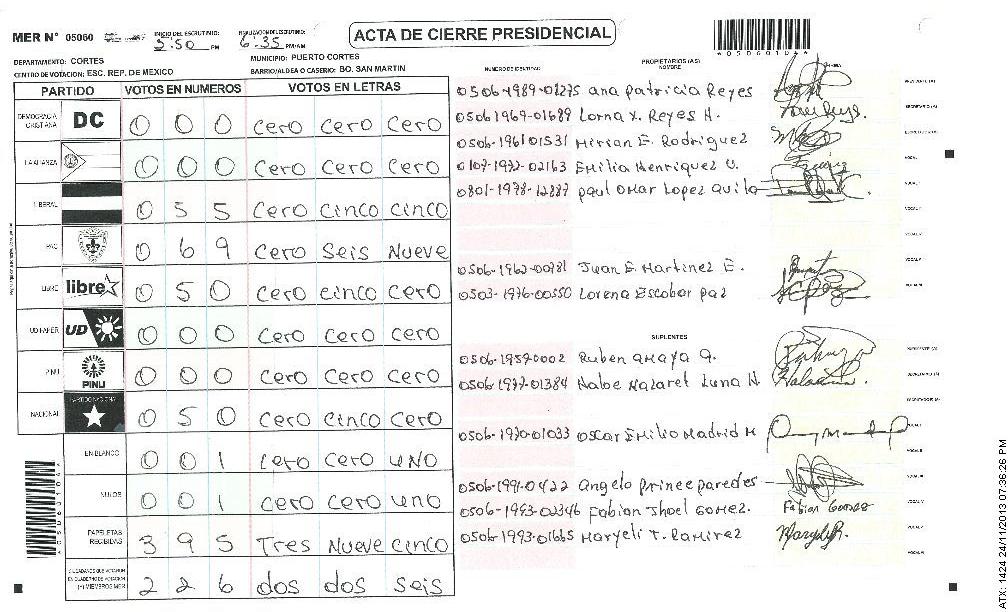 ACTA DE CIERRE PRESIDENCIAL
MER N° 05060
INICIO DEL ESCRUTINIO: 5:50 PM
FINALIZACION DEL ESCRUTINIO: 6:35 PM/AM
*05060104*
DEPARTAMENTO: CORTES
MUNICIPIO: PUERTO CORTES
CENTRO DE VOTACION: ESC. REP. DE MEXICO
BARRIO/ALDEA O CASERIO: BO. SAN MARTIN
PARTIDO VOTOS EN NUMEROS VOTOS EN LETRAS
DEMOCRACIA CRISTIANA DC 0 0 0 Cero Cero Cero
LA ALIANZA 0 0 0 Cero Cero Cero
LIBERAL 0 5 5 Cero Cinco Cinco
PAC 0 6 9 Cero Seis Nueve
LIBRE libre 0 5 0 Cero Cinco Cero
UD FAPER UD 0 0 0 Cero Cero Cero
PINU PINU 0 0 0 Cero Cero Cero
NACIONAL PARTIDO NACIONAL 0 5 0 Cero Cinco Cero
EN BLANCO 0 0 1 Cero Cero UNO
NULOS 0 0 1 Cero Cero Uno
PAPELETAS RECIBIDAS 3 9 5 Tres Nueve Cinco
CIUDADANOS QUE VOTARON EN CUADERNO DE VOTACION (+) MIEMBROS MER 2 2 6 dos dos Seis
NUMERO DE IDENTIDAD PROPIETARIOS (AS) NOMBRE FIRMA
0506-1989-01275 Ana Patricia Reyes PRESIDENTE (A)
0506 1969-01689 Lorna Y. Reyes H. SECRETARIO (A)
0506-1961 01531 Mirian E. Rodriguez
0107-1972-02163 Emilia Henriquez U. VOCAL I
0801-1978-12887 Paul Omar Lopez Avila
0506-1962-00781 Juan E. Martinez E.
0503-1976-00550 Lorena Escobar Paz
SUPLENTES
0506-1959-0002 Ruben Amaya A.
0506-1977-01384 Nabe Nazaret Luna H
0506-1970-01033 Oscar Emilio Madrid M
0506-1991-0422 Angelo Prince Paredes
0506-1993-02346 Fabian Jhoel Gomez. Fabian Gomez
0506-1993-01665 Maryeli T. Ramirez
ATX: 1424 24/11/2013 07:36:26 PM